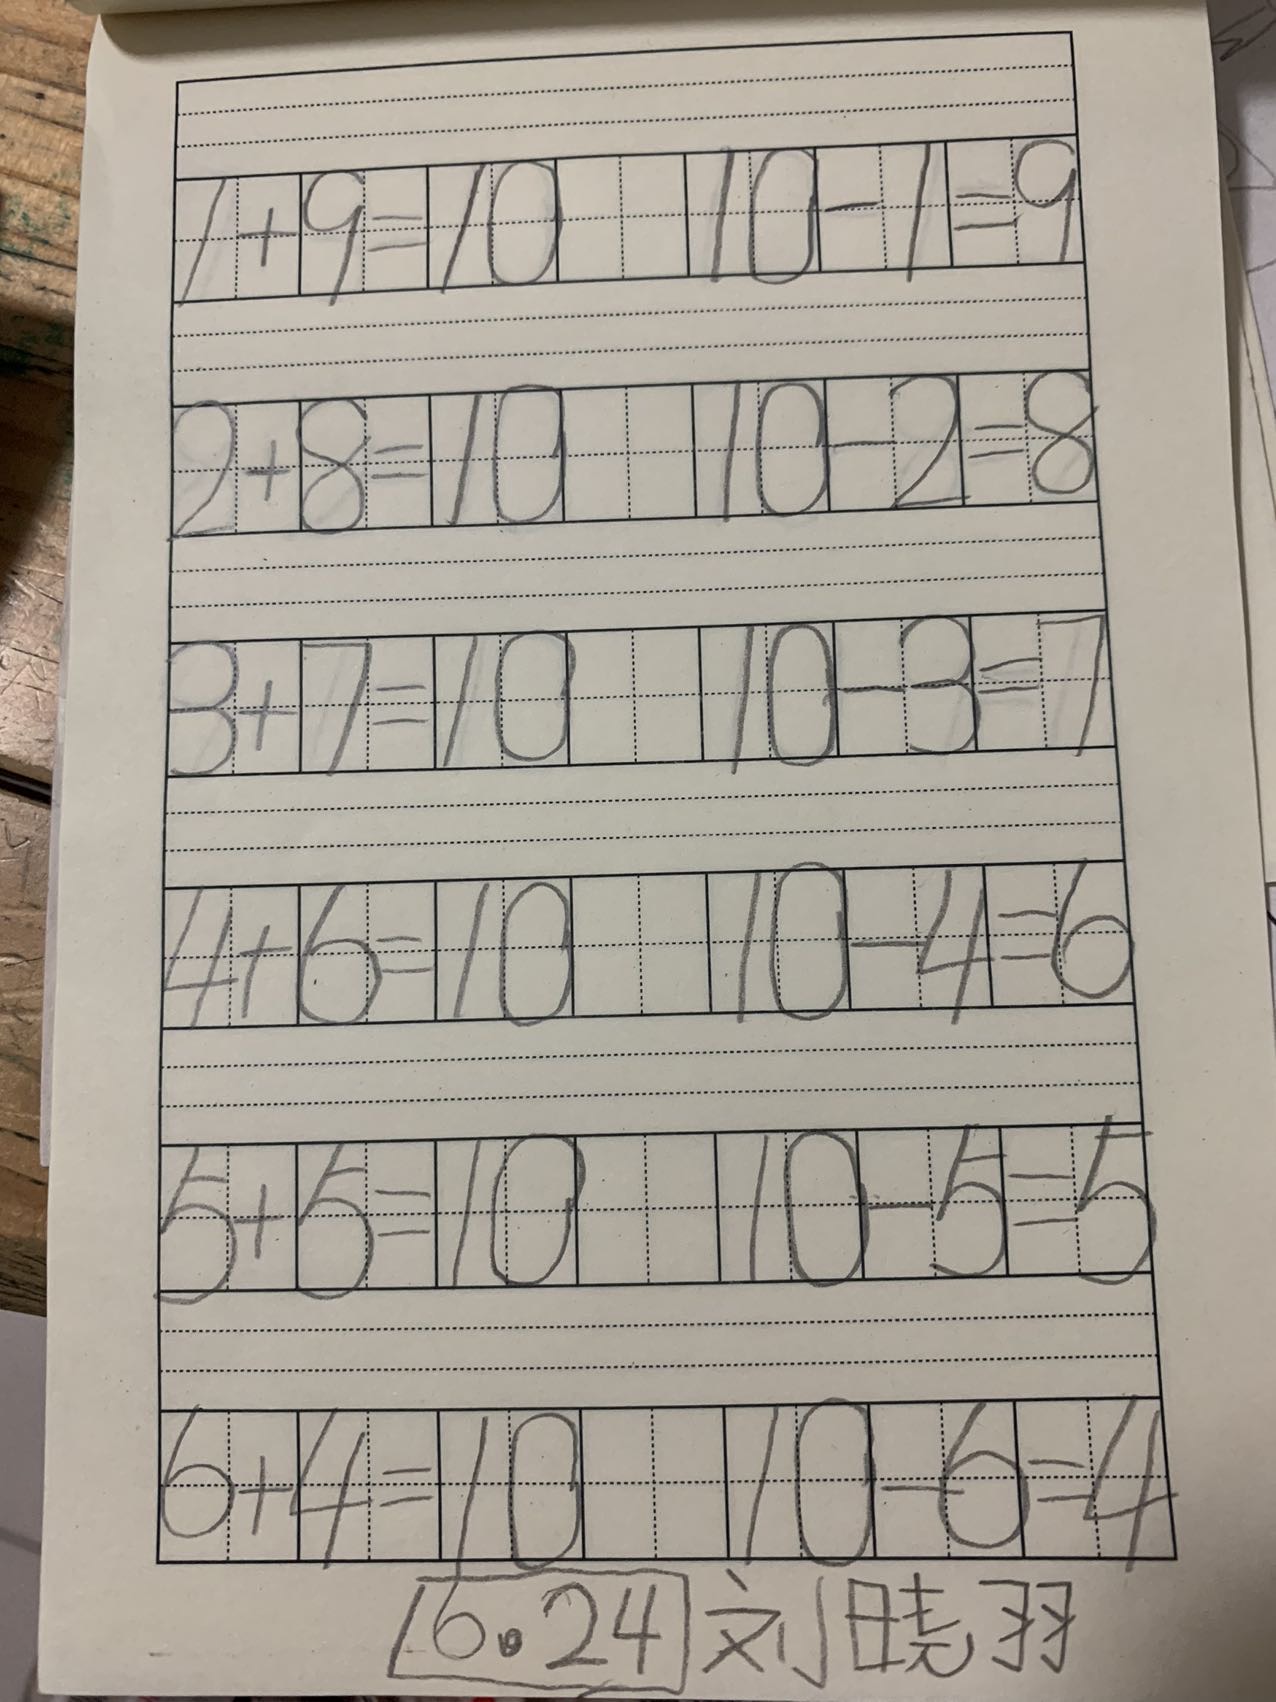 1+9=10 10-1=9
2+8=10 10-2=8
3+7=10 10-3=7
4+6=10 10-4=6
5+5=10 10-5=5
6+4=10 10-6=4
6.24 刘晓羽